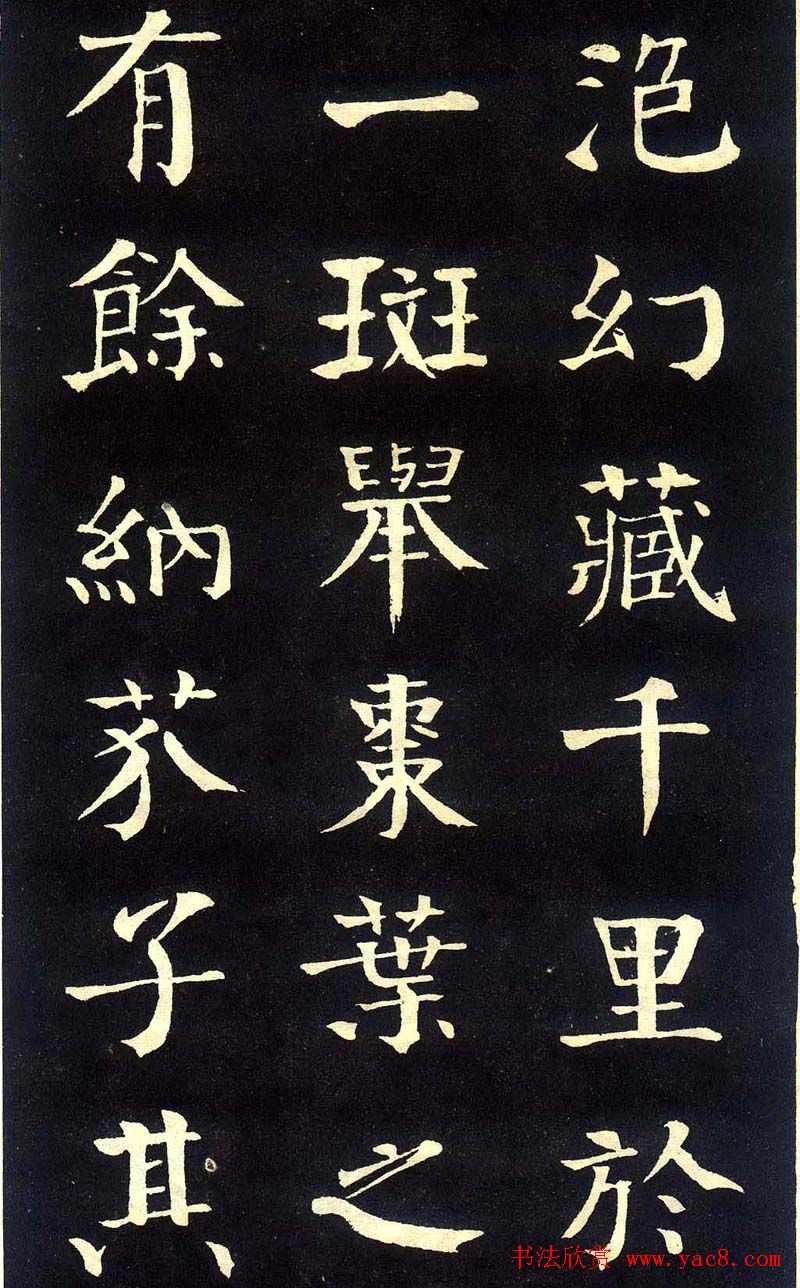 泡幻藏千里於
一斑舉棗葉之
有餘納芥子其
书法欣赏 www.yac8.com